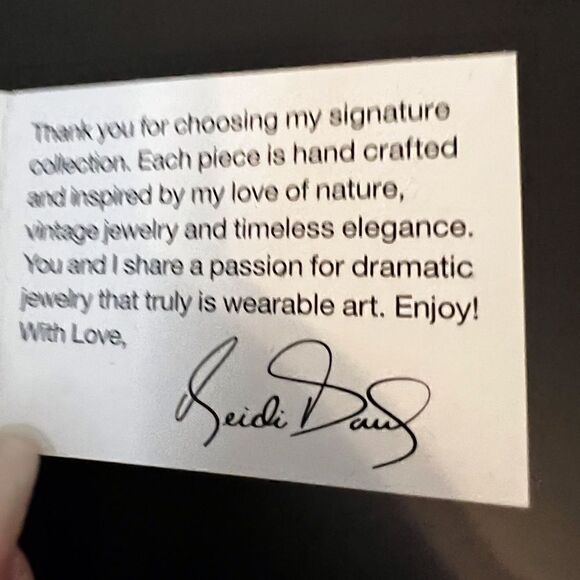 Thank you for choosing my signature
collection. Each piece is hand crafted
and inspired by my love of nature,
vintage jewelry and timeless elegance.
You and I share a passion for dramatic
jewelry that truly is wearable art. Enjoy!
With Love,
Heidi Daus